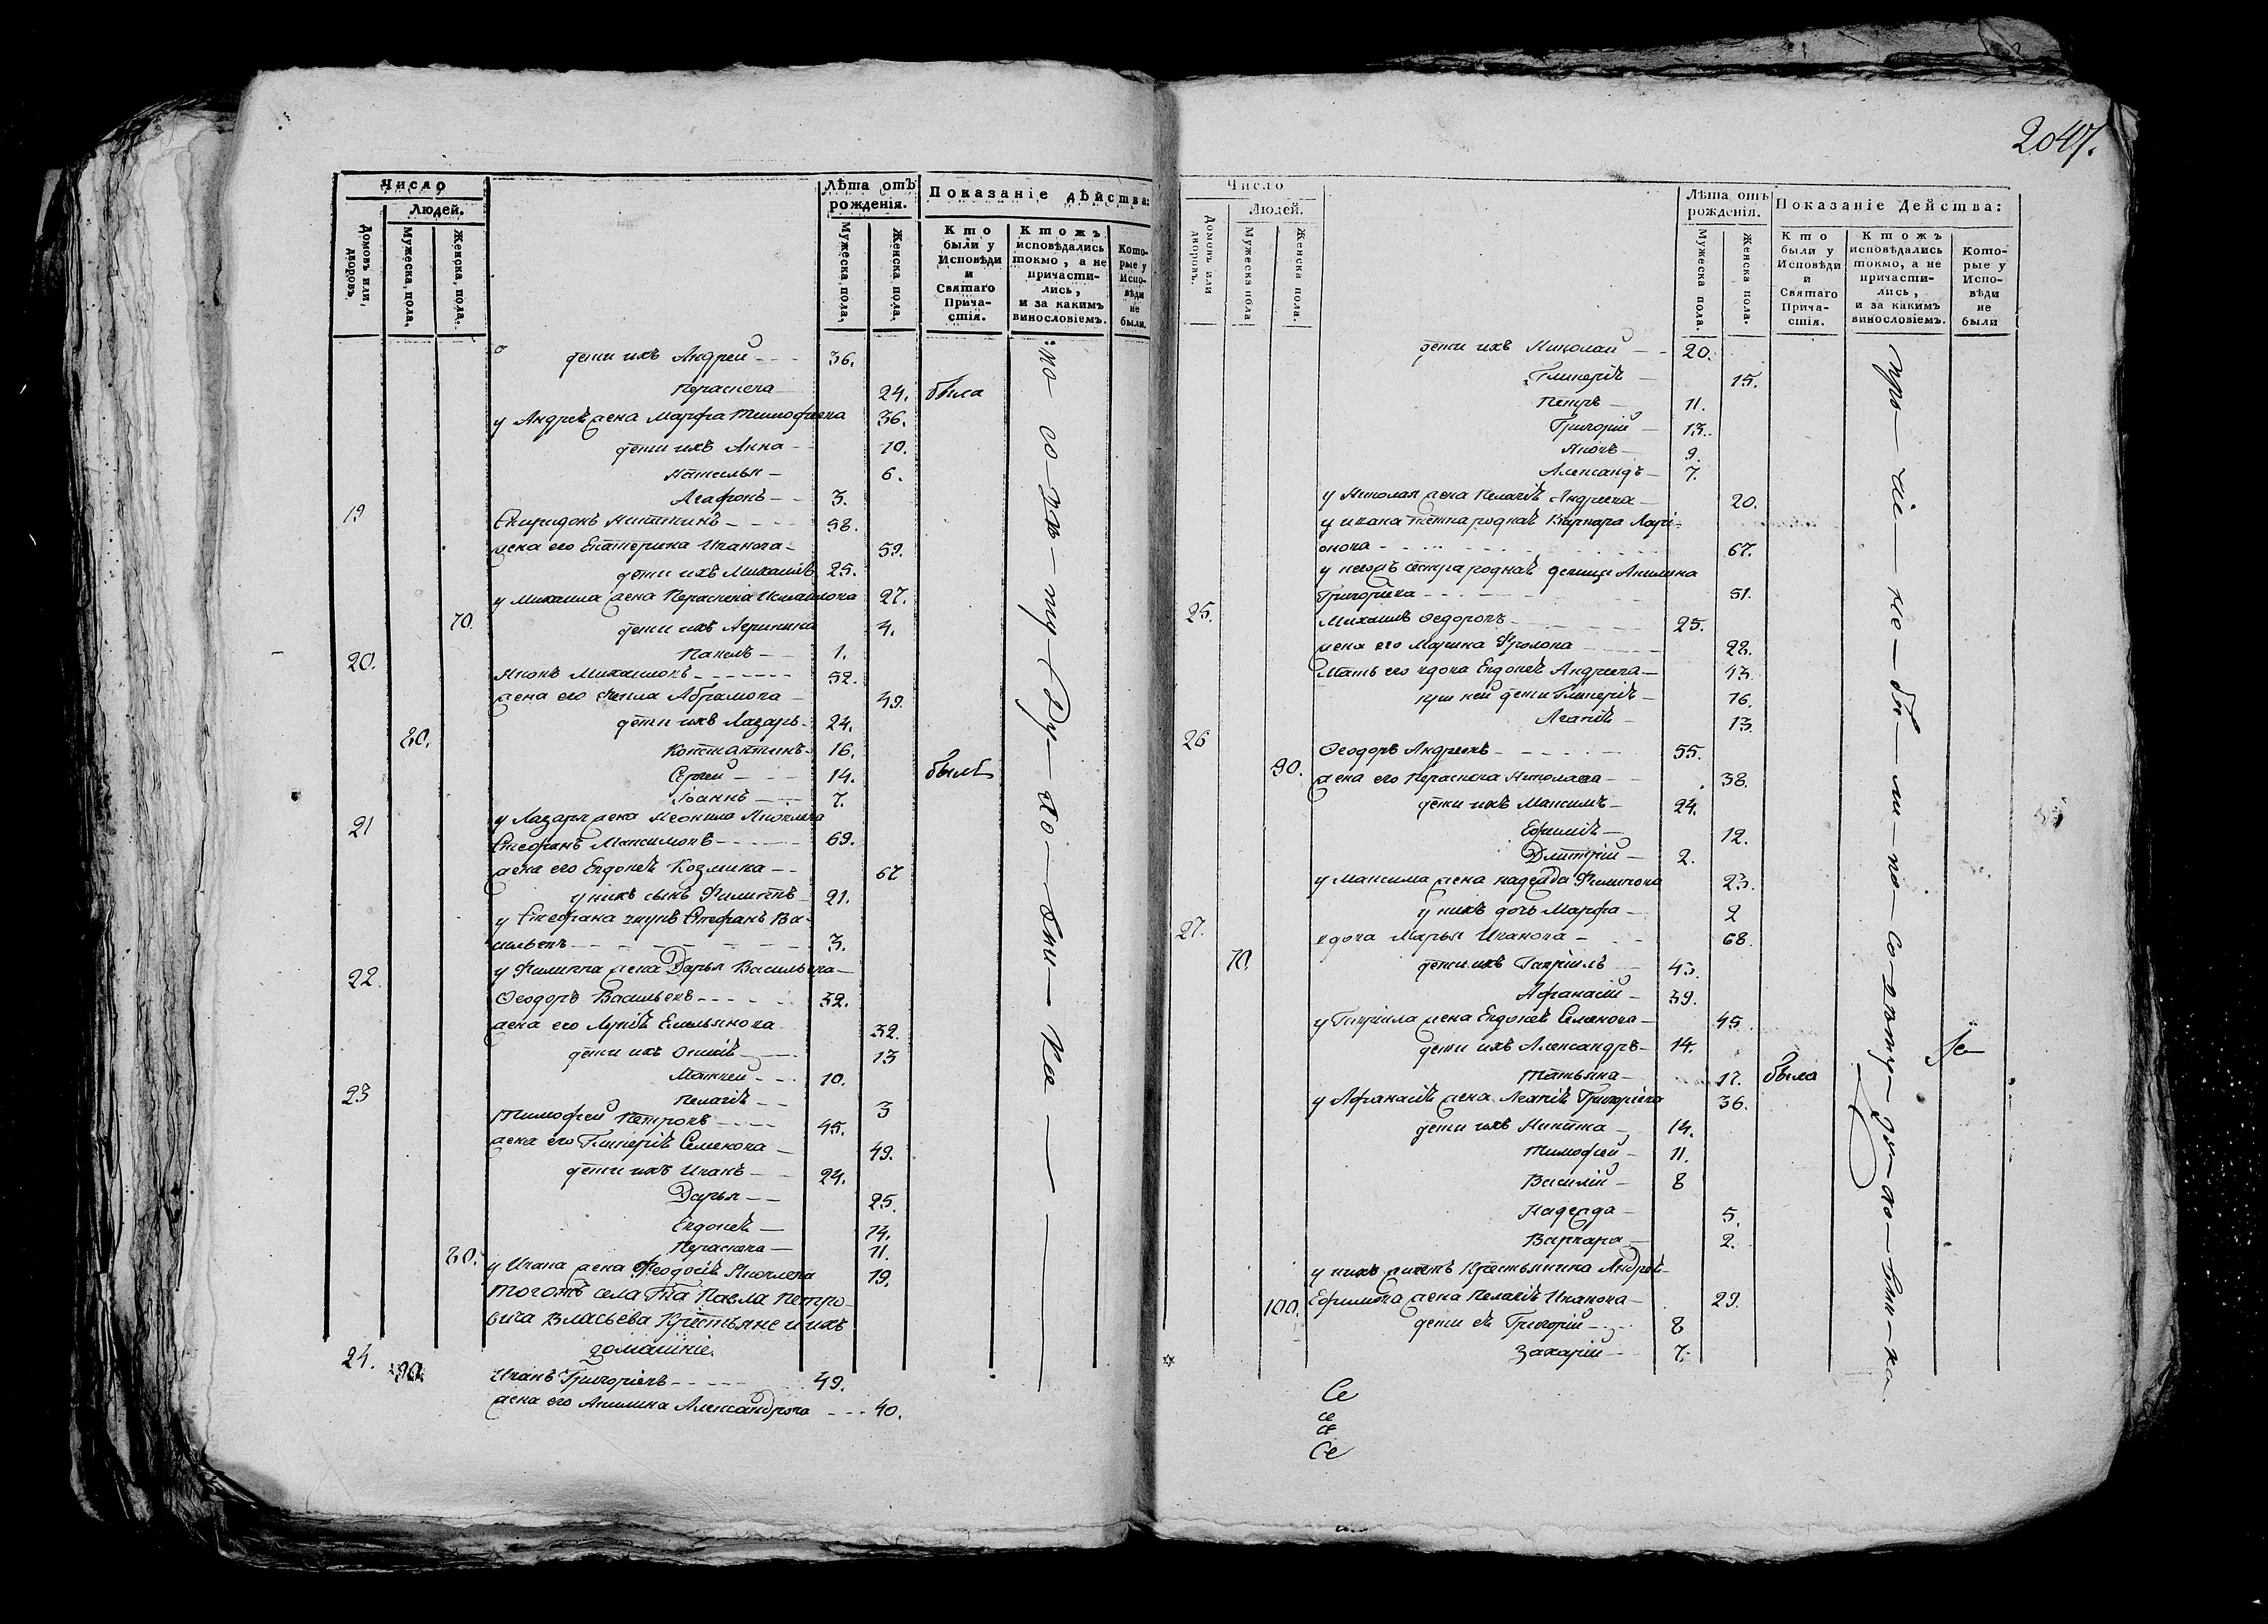 Число
Людей.
Домовъ или, дворовъ,
Мужеска, пола,
Женска, пола,
Лѣта отъ рожденія.
Мужеска, пола,
Женска пола,
Показаніе дѣйства:
Кто были у Исповѣди и Святаго Причастія.
Ктожъ исповѣдались токмо, а не причастились, и за какимъ винословіемъ.
Которые у Исповѣди не были.
дети ихъ Андрей 36.
Параскева 24. была
у Андрея жена Марфа Тимофиева 36.
дети ихъ Анна 10.
Наталья 6.
Агафонъ 3.
19 Спиридонъ Никитинъ 58.
жена его Екатерина Иванова 59.
дети ихъ Михаилъ 25.
у Михаила жена Параскева Исмаилова 27.
70. дети ихъ Агрипина 4.
Павелъ 1.
20. Яковъ Михаиловъ 52.
жена его Фекла Абрамова 49.
дети ихъ Лазарь 24.
80. Константинъ 16.
Сергей 14. былъ
Іоаннъ 7.
у Лазаря жена Неонила Яковлева
21 Стефанъ Максимовъ 69.
жена его Евдокия Козмина 67
у нихъ сынъ Филиппъ 21.
у Стефана внукъ Стефанъ Ва-
сильевъ 3.
у Филиппа жена Дарья Васильева
22. Ѳеодоръ Васильевъ 32.
жена его Лукия Емельянова 32.
дети ихъ 13
Матвей 10.
Пелагия 3
23 Тимофей Петровъ 45.
жена его Гликерия Семенова 49.
дети ихъ Иванъ 24.
Дарья 25.
Евдокия 14.
Параскева 11.
80. у Ивана жена Феодосия Яковлева 19.
Тогожъ села Гна Павла Петро-
вича Власьева Крестьяне и ихъ
домашние.
24. 90. Иванъ Григориевъ 49.
жена его Акилина Александрова 40.
2047.
Число
Людей.
Домовъ или дворовъ.
Мужеска пола
Женска пола.
Лѣта отъ рожденія.
Мужеска пола.
Женска пола.
Показаніе Действа:
Кто были у Исповѣди и Святаго Причастія.
Ктожъ исповѣдались токмо, а не причастились, и за какимъ винословіемъ.
Которые у Исповѣди не были
дети ихъ Николай 20.
Гликерия 15.
Петръ 11.
Григорий 13.
Яковъ 9.
Александъ 7.
у Николая жена Пелагия Андреева 20.
у Ивана тетка родная Варвара Лари-
онова 67.
сестра родная девица Акилина
Григориева 51.
25. Михаилъ Федоровъ 25.
жена его Марина Фролова 22.
Мать его вдова Евдокия Андреева 43.
при ней дети Гликерия 16.
Агапия 13.
26 Ѳеодоръ Андреевъ 55.
90. жена его Параскева Николаева 38.
дети ихъ Максимъ 24.
Ефимия 12.
Дмитрий 2.
у Максима жена Надежда Филипова 23.
у нихъ дочь Марфа 2
27. вдова Марья Иванова 68.
70. дети ихъ Гавриилъ 43.
Афанасий 39.
у Гавриила жена Евдокия Семенова 45.
дети ихъ Александръ 14.
Татьяна 17. была
у Афанасия жена Агапия Григориева 36.
дети ихъ Никита 14.
Тимофей 11.
Василий 8
Надежда 5.
Варвара 2.
у нихъ крестьянина Андрея
100. Ефимова жена Пелагия Иванова 29.
дети ея Григорий 8
Захарий 7.
Се
се
се
Се